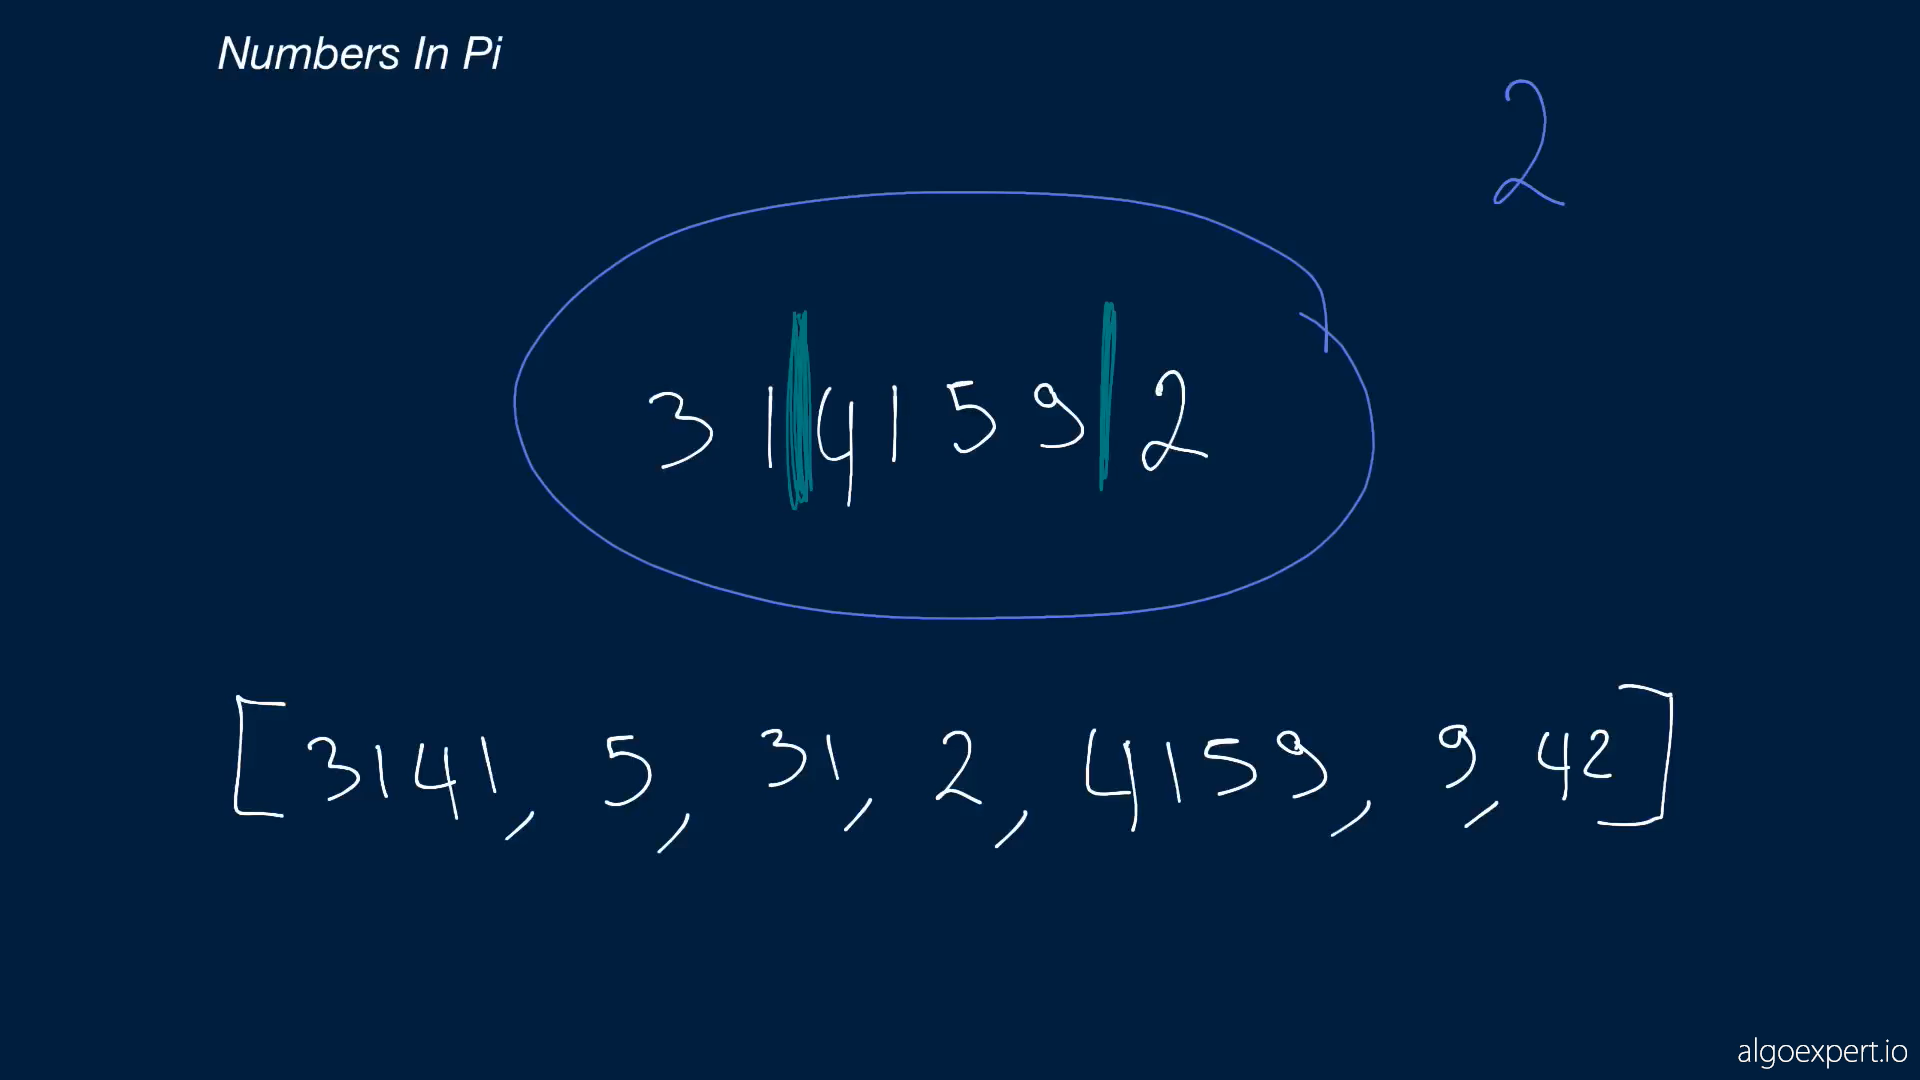 Numbers In Pi
2
31|4159|2
[3141, 5, 31, 2, 4159, 9, 42]
algoexpert.io